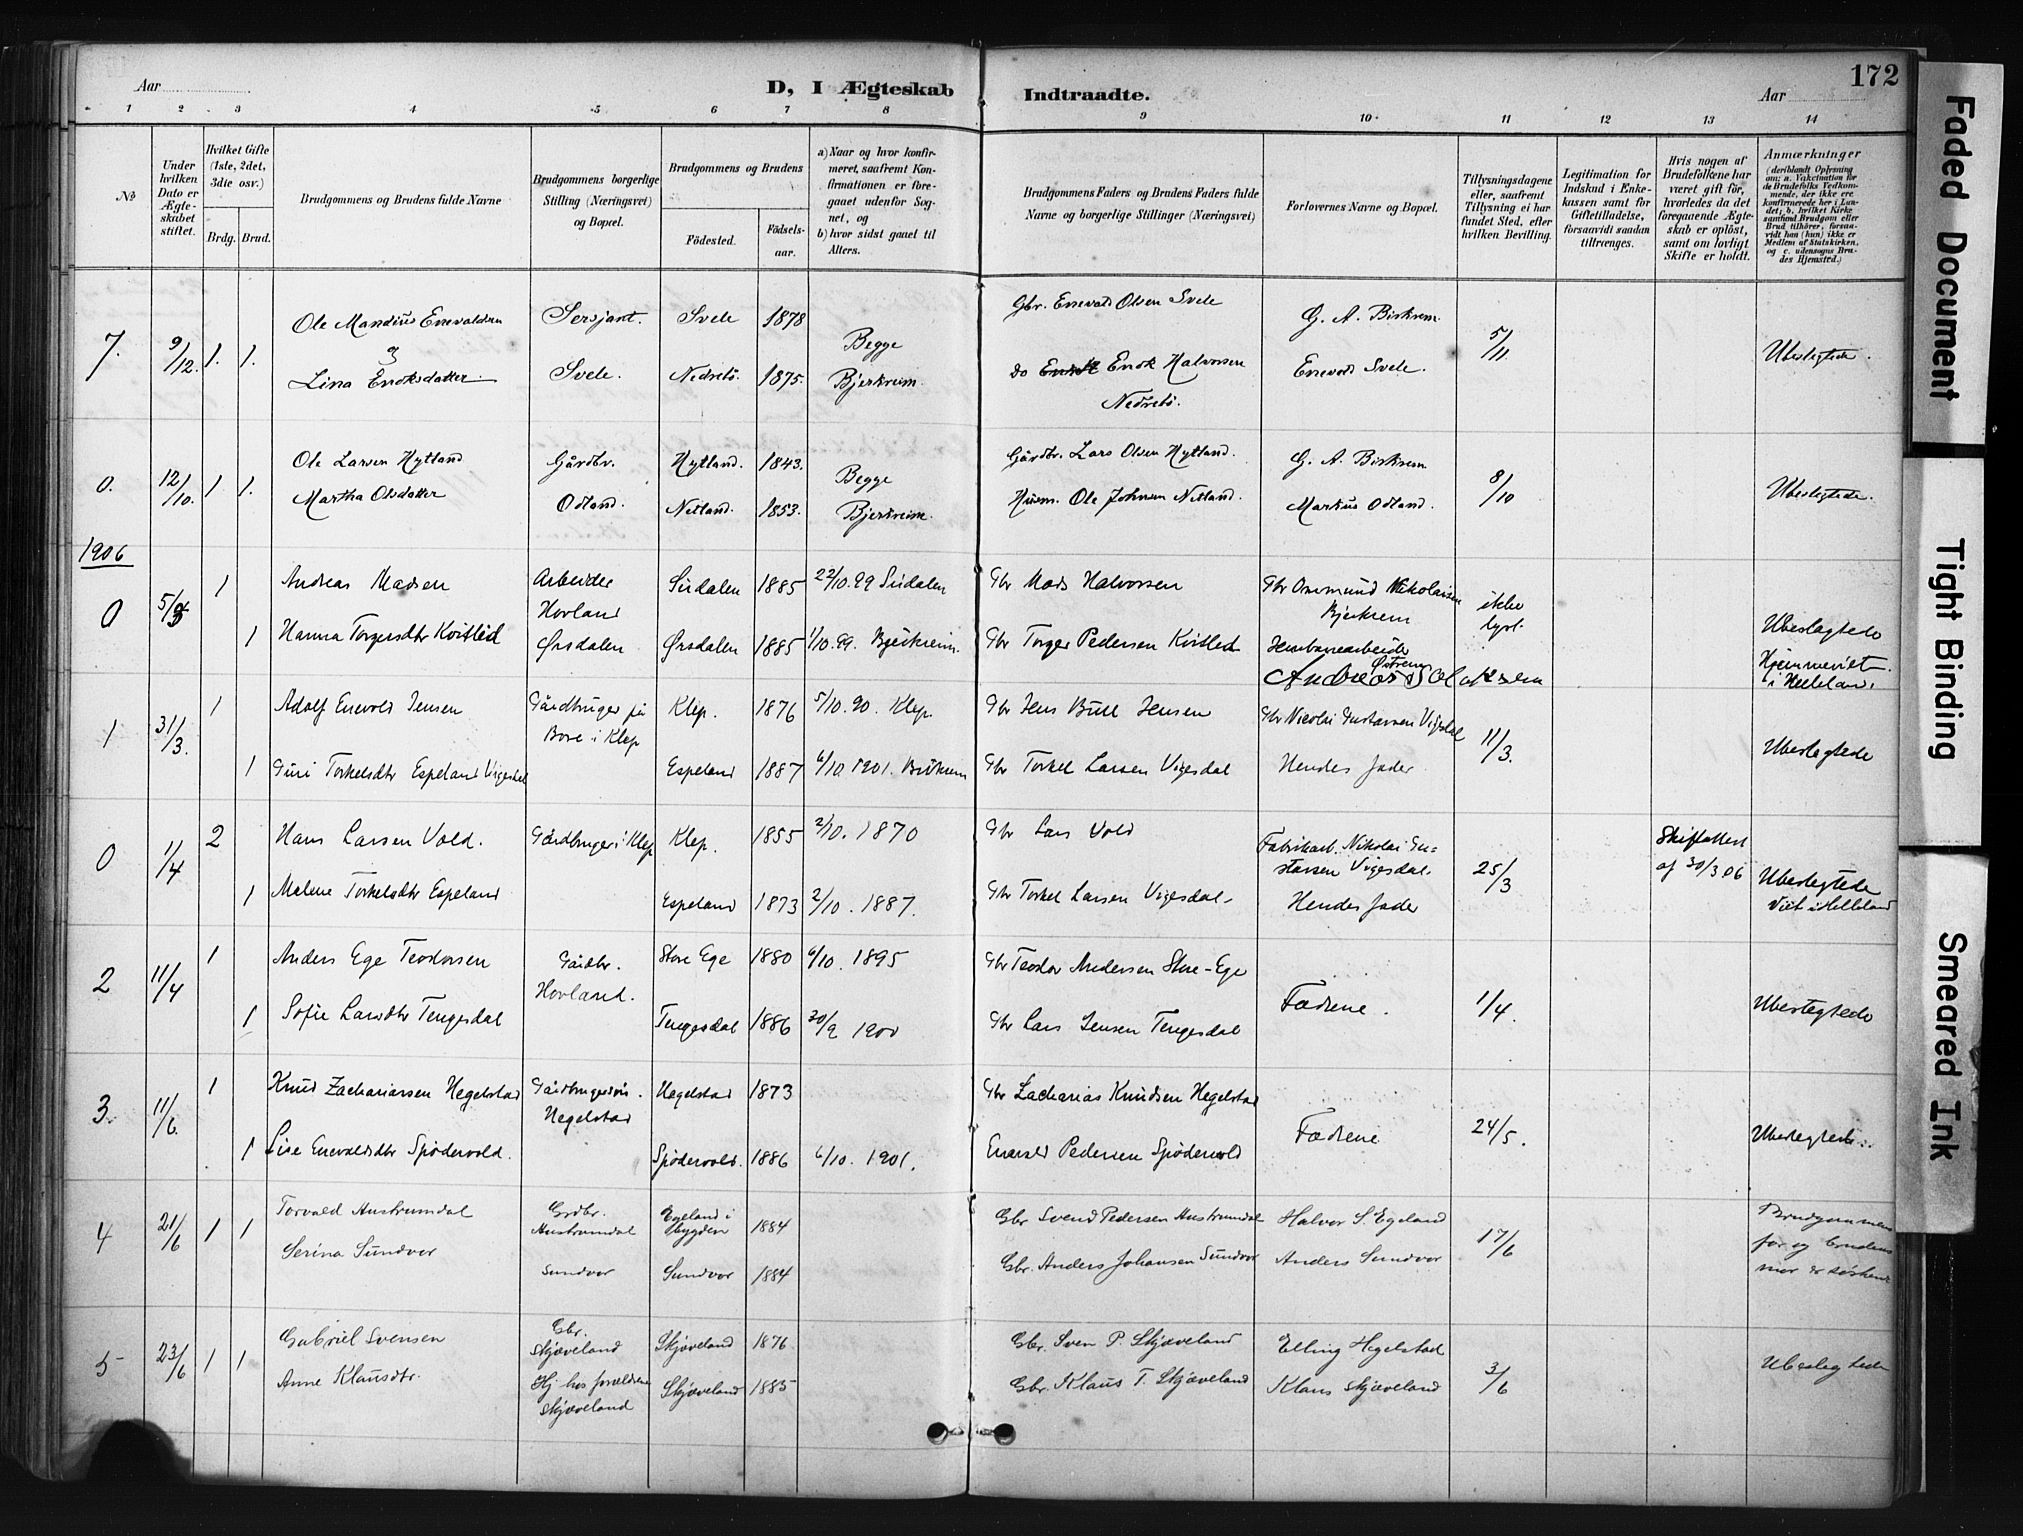 172
Aar
D, I Ægteskab Indtraadte.
Aar
1 2 3 4 5 6 7 8 9 10 11 12 13 14
No
Under hvilken Dato er Ægteskabet stiftet.
Hvilket Gifte (1ste, 2det, 3die osv.)
Brdg. Brud.
Brudgommens og Brudens fulde Navne
Brudgommens borgerlige Stilling (Næringsvei) og Bopæl.
Brudgommens og Brudens
Födested.
Födselsaar.
a) Naar og hvor konfirmeret, saafremt Konfirmationen er foregaaet udenfor Sognet, og
b) hvor sidst gaaet til Alters.
Brudgommens Faders og Brudens Faders fulde Navne og borgerlige Stillinger (Næringsvei)
Forlovernes Navne og Bopæl.
Tillysningsdagene eller, saafremt Tillysning ei har fundet Sted, efter hvilken Bevilling.
Legitimation for Indskud i Enkekassen samt for Giftetilladelse, forsaavidt saadan tiltrænges.
Hvis nogen af Brudefolkene har været gift för, hvorledes da det foregaaende Ægteskab er oplöst, samt om lovligt Skifte er holdt.
Anmærkninger (deriblandt Oplysning om: a. Vakcination for de Brudefolks Vedkommende, der ikke ere konfirmerede her i Landet; b. hvilket Kirkesamfund Brudgom eller Brud tilhörer, forsaavidt han (hun) ikke er Medlem af Statskirken, og c. udensogns Brudes Hjemsted.)
7. 9/12. 1. 1. Ole Mandius Enevaldsen Sersjant. Svele 1878 Begge Gbr. Enevald Olsen Svele G. A. Birkrem 5/11 Ubeslegtede.
og
Lina Enoksdatter Svele. Nedrebö. 1875. Bjerkreim. Do Enok Halvorsen Nedrebö. Enevald Svele.
0. 12/10. 1 1. Ole Larsen Hytland Gårdbr. Hytland. 1843. Begge Gårdbr. Lars Olsen Hytland. G. A. Birkrem 8/10 Ubeslegtede.
Martha Olsdatter Odland. Netland. 1853. Bjerkreim. Husm. Ole Johnsen Netland. Markus Odland.
1906
0 1 Andreas Madsen Arbeider Hovland Sirdalen 1885 22/10.99 Sirdalen Gbr Mads Halvorsen Gbr Ommund Nikolaisen Bjerkrem ikke lyst. Ubeslagtede
1 Hanna Torgersdtr Kvitleid Ørsdalen Ørsdalen 1885 1/10.99. Bjerkreim. Gbr Torger Pedersen Kvitleid Jernbanearbeide Østrem Hjemmeviet i Helleland.
1 31/3. 1 Adolf Enevold Jensen Gårdbruger på Bore i Klep Klep. 1876 5/10.90. Klep. Gbr Jens Bull Jensen Gbr Nicolai Gustavsen Vigesdal 11/3. Ubeslegtede
1 Guri Torkelsdtr Espeland Vigesdal Espeland 1887 6/10.1901. Birkrem Gbr Torkel Larsen Vigesdal Hendes fader
0 11/4 2 Hans Larsen Vold. Gårdbruger i Klep Klep. 1855 2/10. 1870 Gbr Lars Vold Fabrikarb. Nikolai Gustavsen Vigesdal. 25/3 Skifteattest af 30/3 06 Ubeslegtede
1 Malene Torkelsdtr Espeland Espeland 1873 2/10. 1887. Gbr Torkel Larsen Vigesdal. Hendes fader Viet i Helleland
2 11/4 1 Anders Ege Teodorsen Gårdbr. Hovland. Store Ege 1880 6/10. 1895 Gbr Teodor Andersen Store-Ege Fædrene. 1/4. Ubeslegtede
1 Sofie Larsdtr Tengesdal Tengesdal 1886 30/9 1900 Gbr Lars Jensen Tengesdal
3. 11/6. 1 Knud Zachariassen Hegelstad Gårdbrugersøn. Hegelstad Hegelstad 1873 Gbr Zacharias Knudsen Hegelstad Fædrene 24/5. Ubeslegtede.
1 Lise Enevaldsdtr Spødervold. Spødervold. 1886 6/10. 1901. Enevald Pedersen Spødervold
4 21/6 1 1 Torvald Austrumdal Grdbr. Austrumdal Egeland i 1884 Gbr Svend Pedersen Austrumdal Halvor S. Egeland 17/6 Brudgommens far og brudens mor er søskende
Serina Sundvor Sundvor Sundvor 1884 Gbr. Anders Johansen Sundvor Anders Sundvor
5 23/6 1 1 Gabriel Svensen Gbr. Skjæveland Skjæveland 1876 Gbr. Sven P. Skjæveland Elling Hegelstad 3/6 Ubeslegtede
Anne Klausdtr. Hj. hos forældrene Skjæveland Skjæveland 1885 Gbr. Klaus T. Skjæveland Klaus Skjæveland
Faded Document
Tight Binding
Smeared Ink